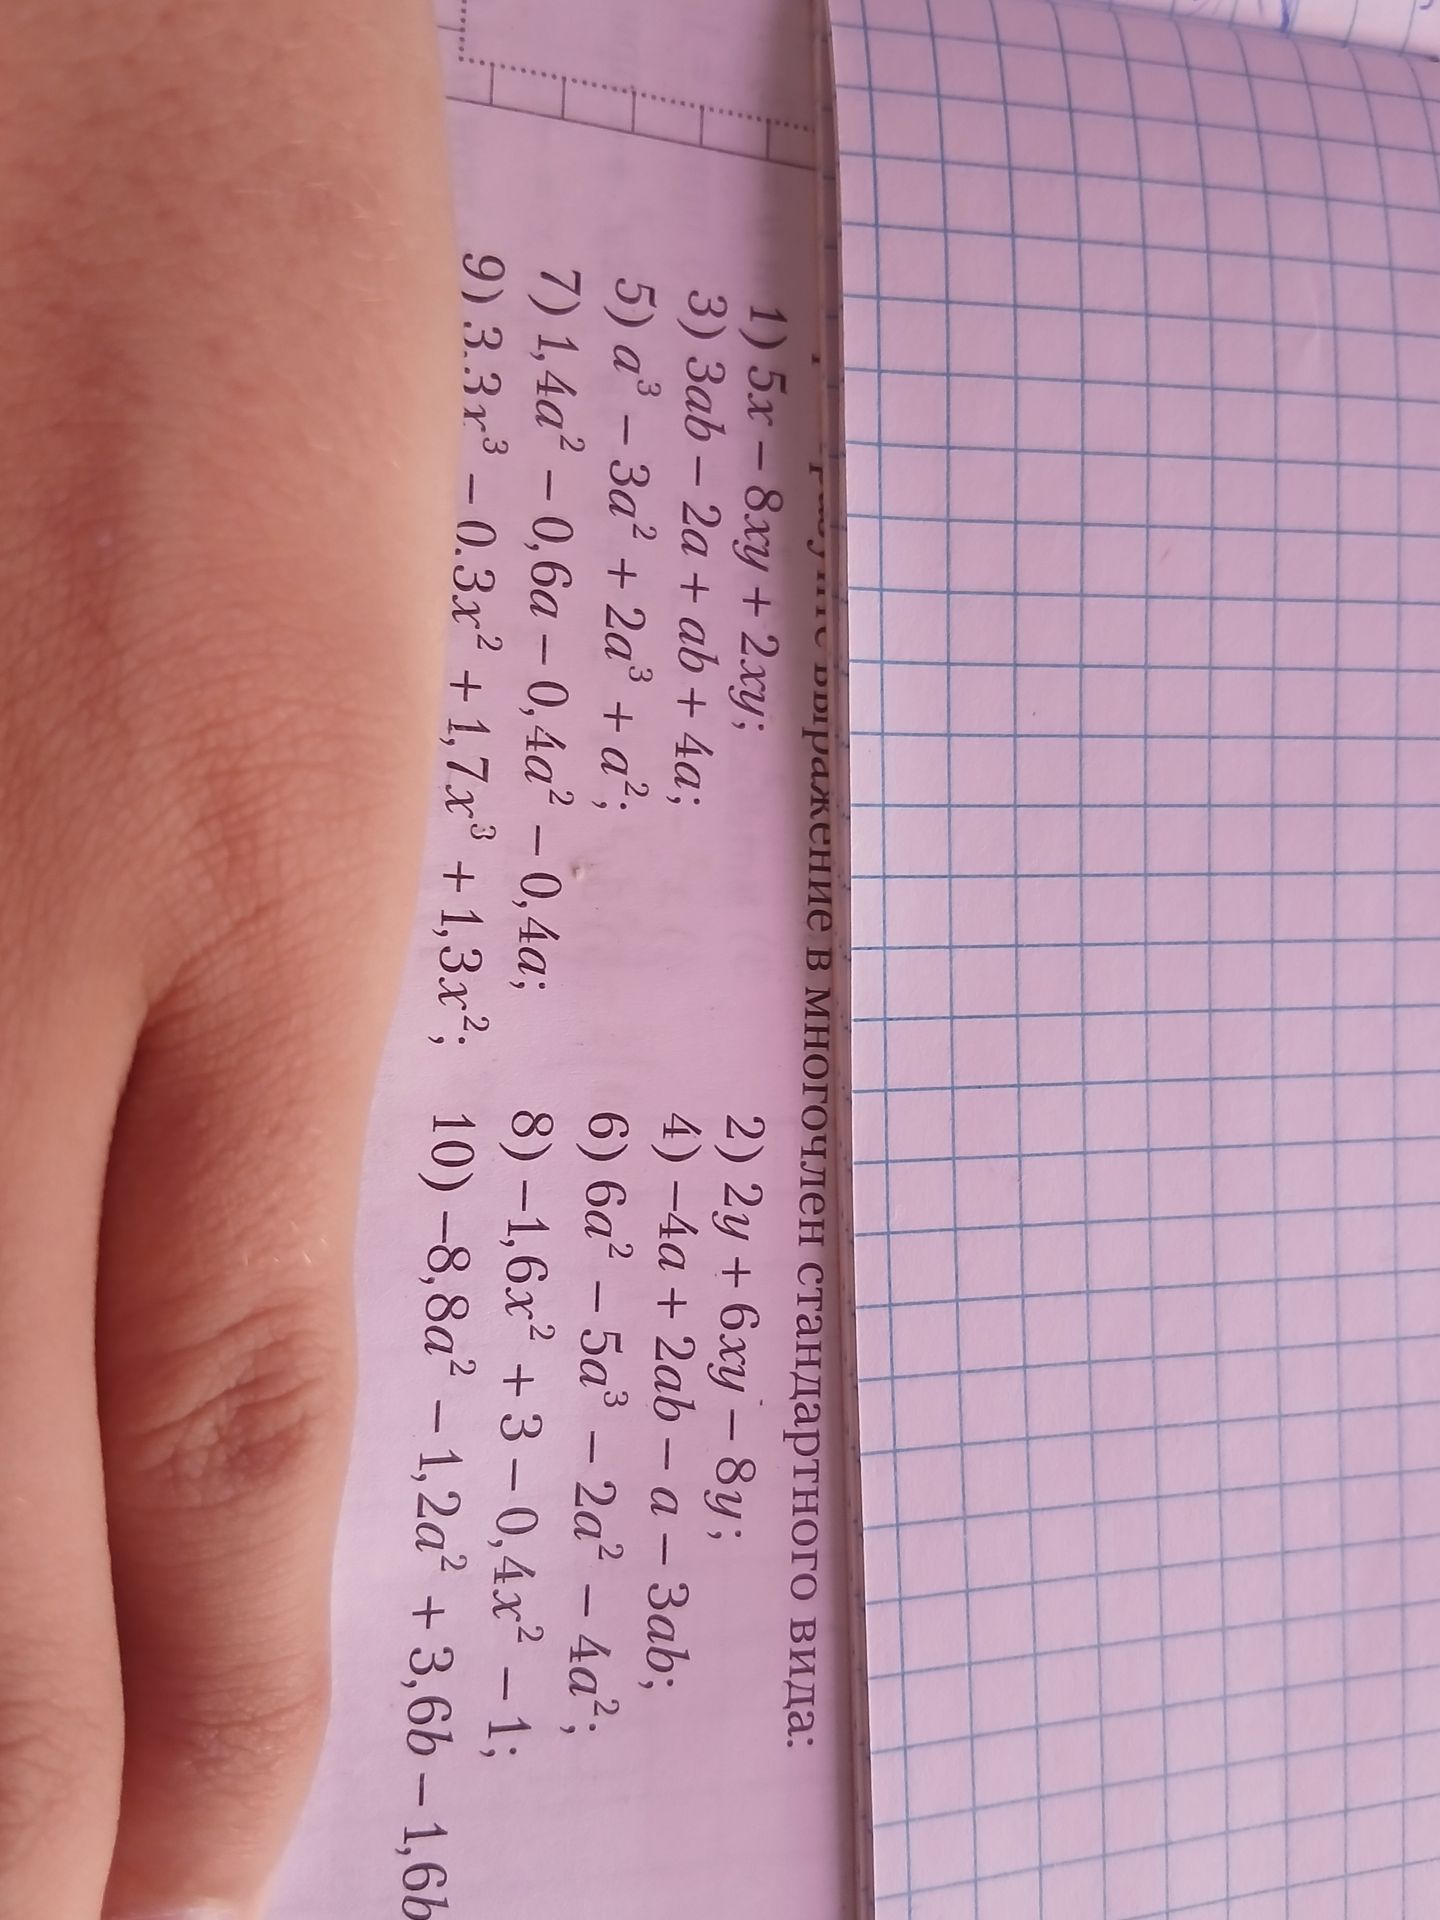 выражение в многочлен стандартного вида:
1) 5x − 8xy + 2xy; 2) 2y + 6xy − 8y;
3) 3ab − 2a + ab + 4a; 4) −4a + 2ab − a − 3ab;
5) a³ − 3a² + 2a³ + a²; 6) 6a² − 5a³ − 2a² − 4a²;
7) 1,4a² − 0,6a − 0,4a² − 0,4a; 8) −1,6x² + 3 − 0,4x² − 1;
9) 3,3x³ − 0,3x² + 1,7x³ + 1,3x²; 10) −8,8a² − 1,2a² + 3,6b − 1,6b